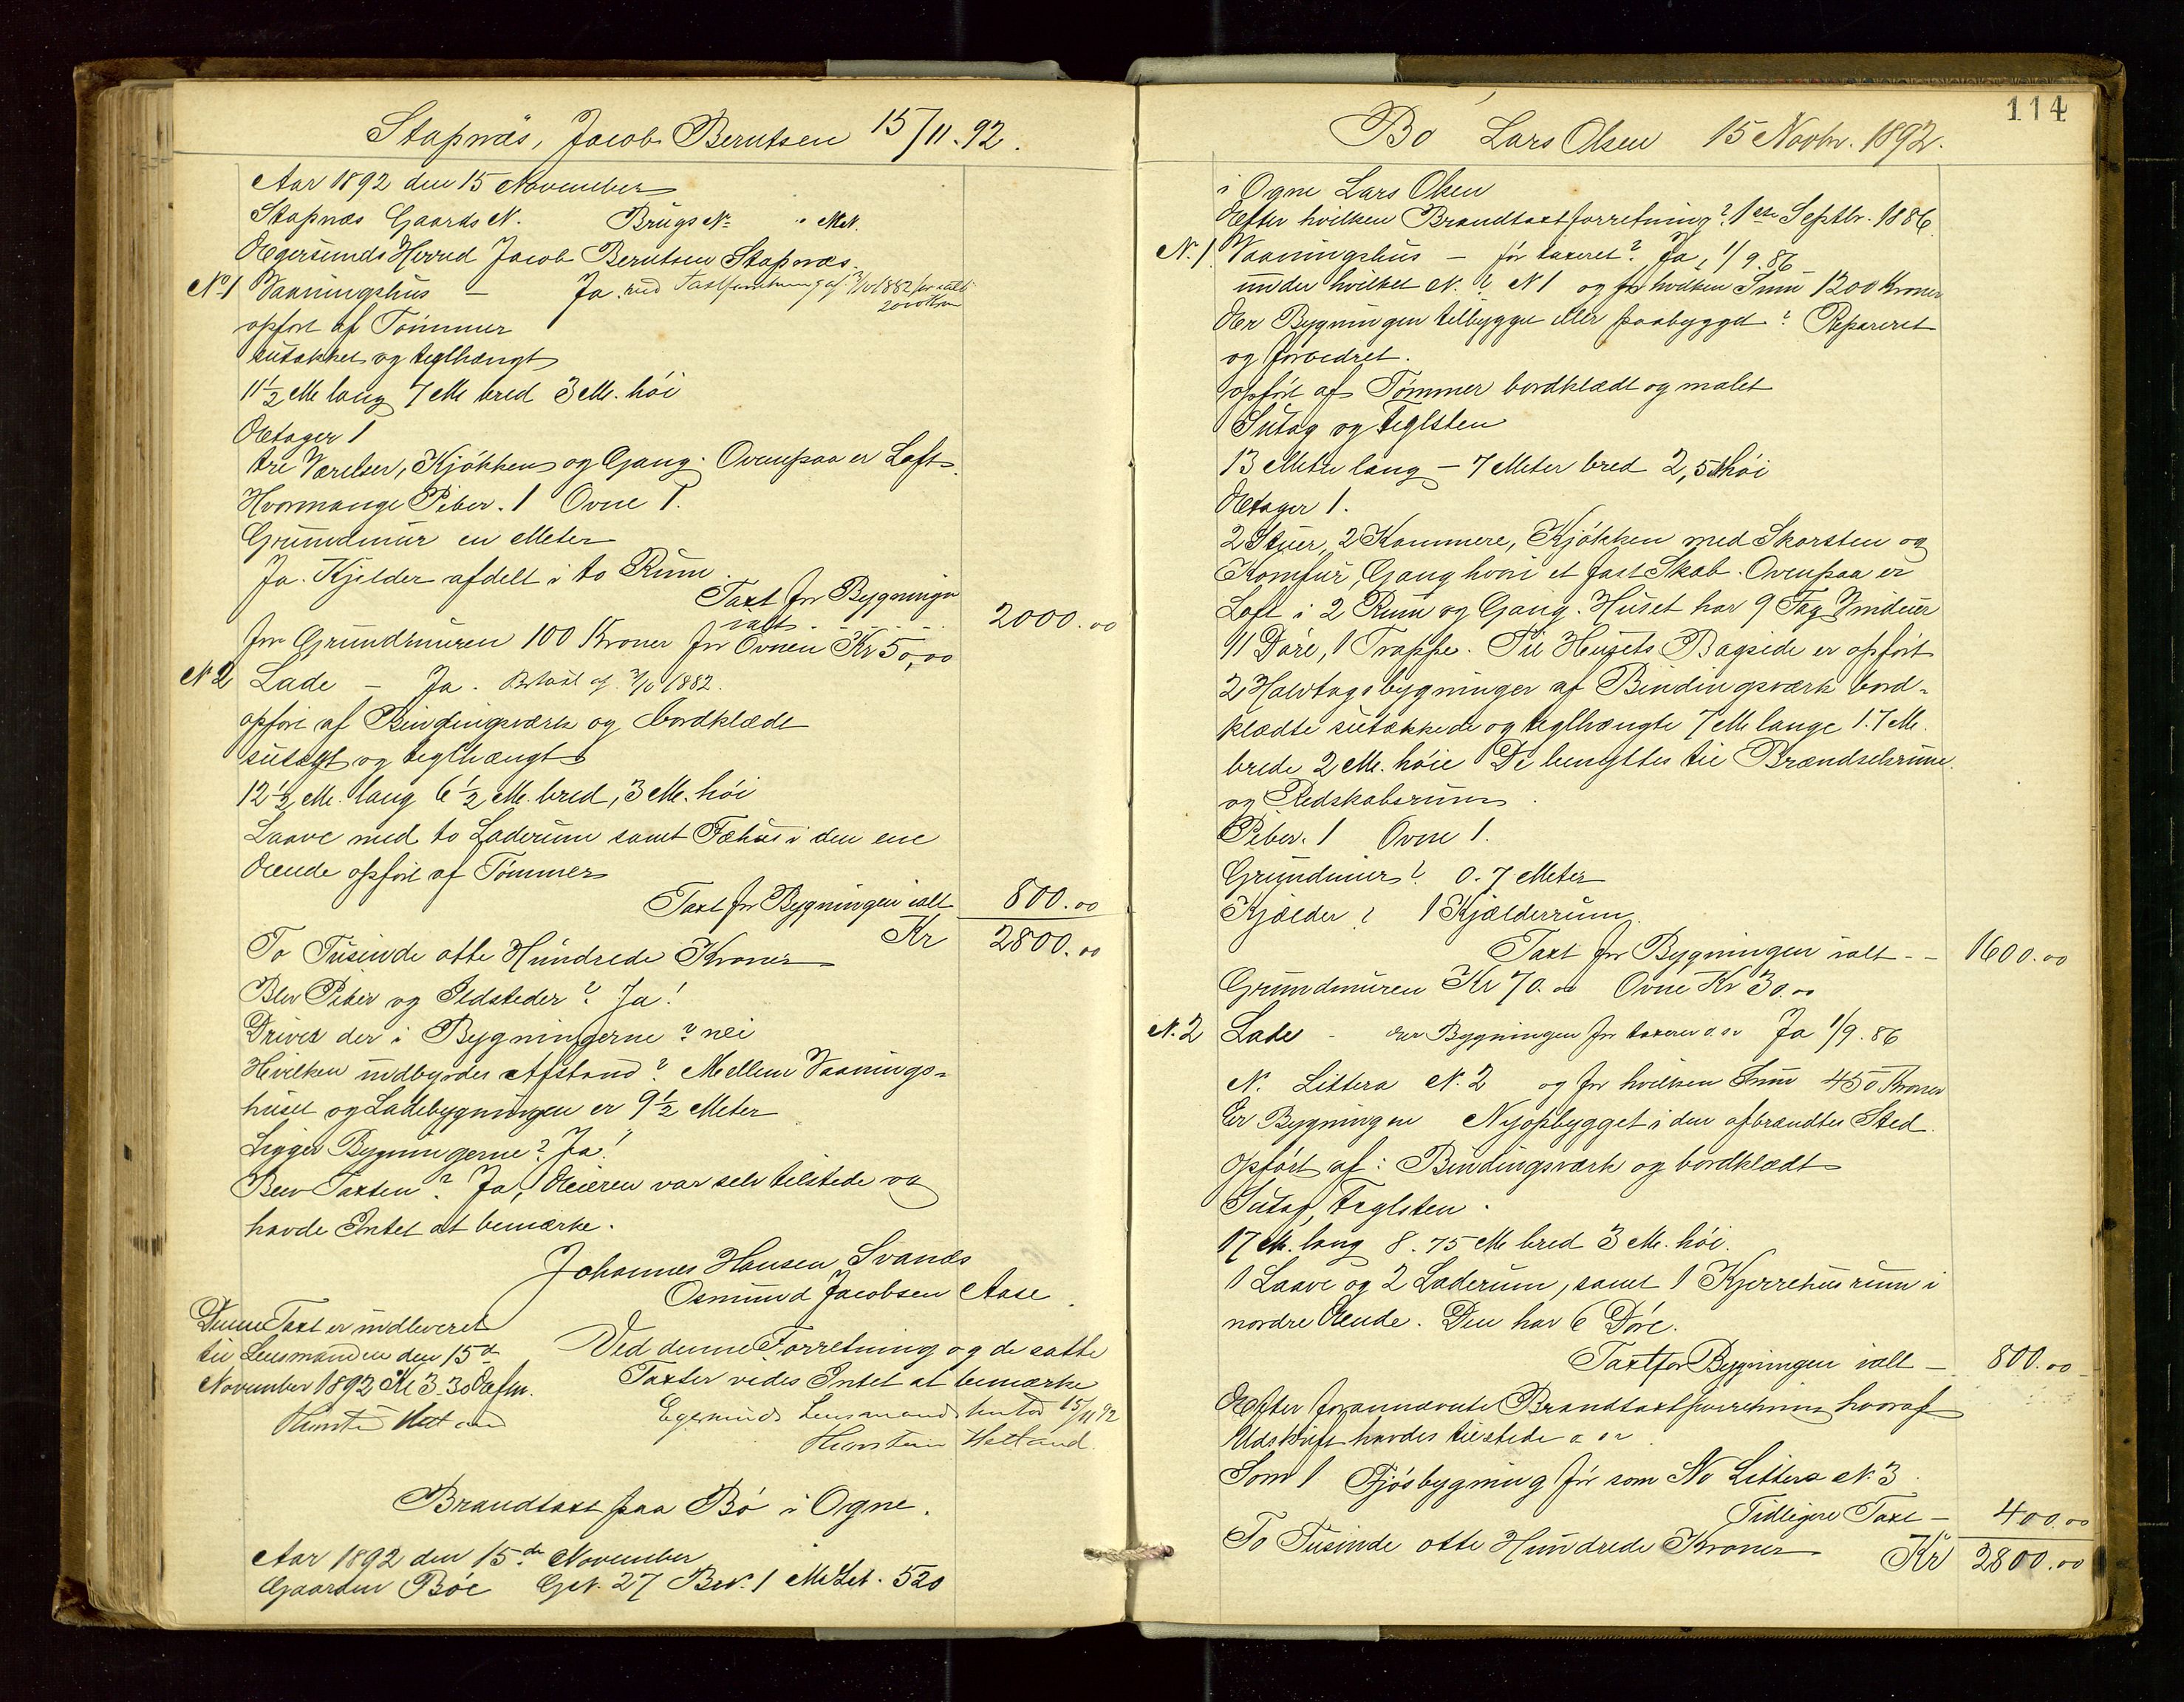 Stapnæs, Jacob Berntsen 15/11.92.
Aar 1892 den 15 November
Stapnæs Gaards N. Brugs No. " MN.
Egersunds Herred Jacob Berntsen Stapnæs.
No 1 Vaaningshus - Ja. ved Taxtforretning af 1882 for ialt
2000 Kron
opført af Tømmer
sutakket og teglhængt
11½ M lang 7 M bred 3 M. høi
Etager 1
tre Værelser, Kjøkken og Gang. Ovenpaa er Loft.
Hvormange Piber. 1 Ovne 1.
Grundmur en Meter
Ja. Kjelder afdelt i to Rum.
Taxt for Bygningen
ialt . . . . . 2000.00
for Grundmuren 100 Kroner for Ovnen Kr 50,00
N 2 Lade - Ja. 1882.
opført af Bindingsværk og bordklædt
sutagt og teglhængt
12½ M. lang 6½ M. bred, 3 M. høi
Laave med to Laderum samt Fæhus i den ene
Ende opført af Tømmer
Taxt for Bygningen ialt 800.00
Kr 2800.00
To Tusinde otte Hundrede Kroner
Blev Piber og Ildsteder? Ja!
Drives der i Bygningerne? nei
Hvilken indbyrdes Afstand? Mellem Vaanings-
huset og Ladebygningen er 9½ Meter
Ligger Bygningerne? Ja!
Blev Taxten? Ja, Eieren var selv tilstede og
havde Intet at bemærke.
Johannes Hansen Svanes
Osmund Jacobsen Aase.
Denne Taxt er indleveret
til Lensmanden den 15de
November 1892 Kl 3.30 Eefm.
Ved denne Forretning og de satte
Taxter vides Intet at bemærke
Egersunds Lensmandskontor 15/11 92
Thorstein Hetland
Brandtaxt paa Bø i Ogne.
Aar 1892 den 15de November
Gaarden Bøe GN. 27 BrN. 1 MLet. 520
114
Bø Lars Olsen 15 Novbr. 1892.
i Ogne Lars Olsen
Efter hvilken Brandtaxtforretning? 1ste Septbr. 1886
N. 1. Vaaningshus - før taxeret? Ja, 1/9.86
under hvilket N.? N 1 og for hvilken Sum 1200 Kroner
Er Bygningen tilbygget eller paabygget? Repareret
og forbedret.
opført af Tømmer bordklædt og malet
Sutag og teglsten
13 Meter lang - 7 Meter bred 2,5 M høi
Etager 1.
2 Stuer, 2 Kammere, Kjøkken med Skorsten og
Komfur, Gang hvori et fast Skab. Ovenpaa er
Loft i 2 Rum og Gang. Huset har 9 Fag Vinduer
11 Døre, 1 Trappe. Til Husets Bagside er opført
2 Halvtagsbygninger af Bindingsværk bord-
klædte sutakkede og teglhængte 7 M lange 1.7 M.
brede 2 M. høie De benyttes til Brændselsrum
og Redskabsrum.
Piber. 1 Ovne 1.
Grundmur? 0.7 Meter
Kjælder? 1 Kjælderrum.
Taxt for Bygningen ialt - - 1600.00
Grundmuren Kr 70.00 Ovne Kr 30.00
N. 2 Lade - Er Bygningen før taxeret o.s.v Ja 1/9.86
N. Littera N. 2 og for hvilken Sum 450 Kroner
Er Bygningen Nyopbygget i den afbrændtes Sted.
Opført af: Bindingsværk og bordklædt
Sutag, teglsten.
17 M. lang 8.75 M bred 3 M. høi.
1 Laave og 2 Laderum, samt 1 Kjerrehusrum i
nordre Ende. Den har 6 Døre.
Taxt for Bygningen ialt - 800.00
Efter forannævnte Brandtaxtforretning hvoraf
Udskrift havdes tilstede o s v
Som 1 Fjøsbygning før som No Littera N. 3.
Tidligere Taxt - 400.00
To Tusinde otte Hundrede Kroner Kr 2800.00